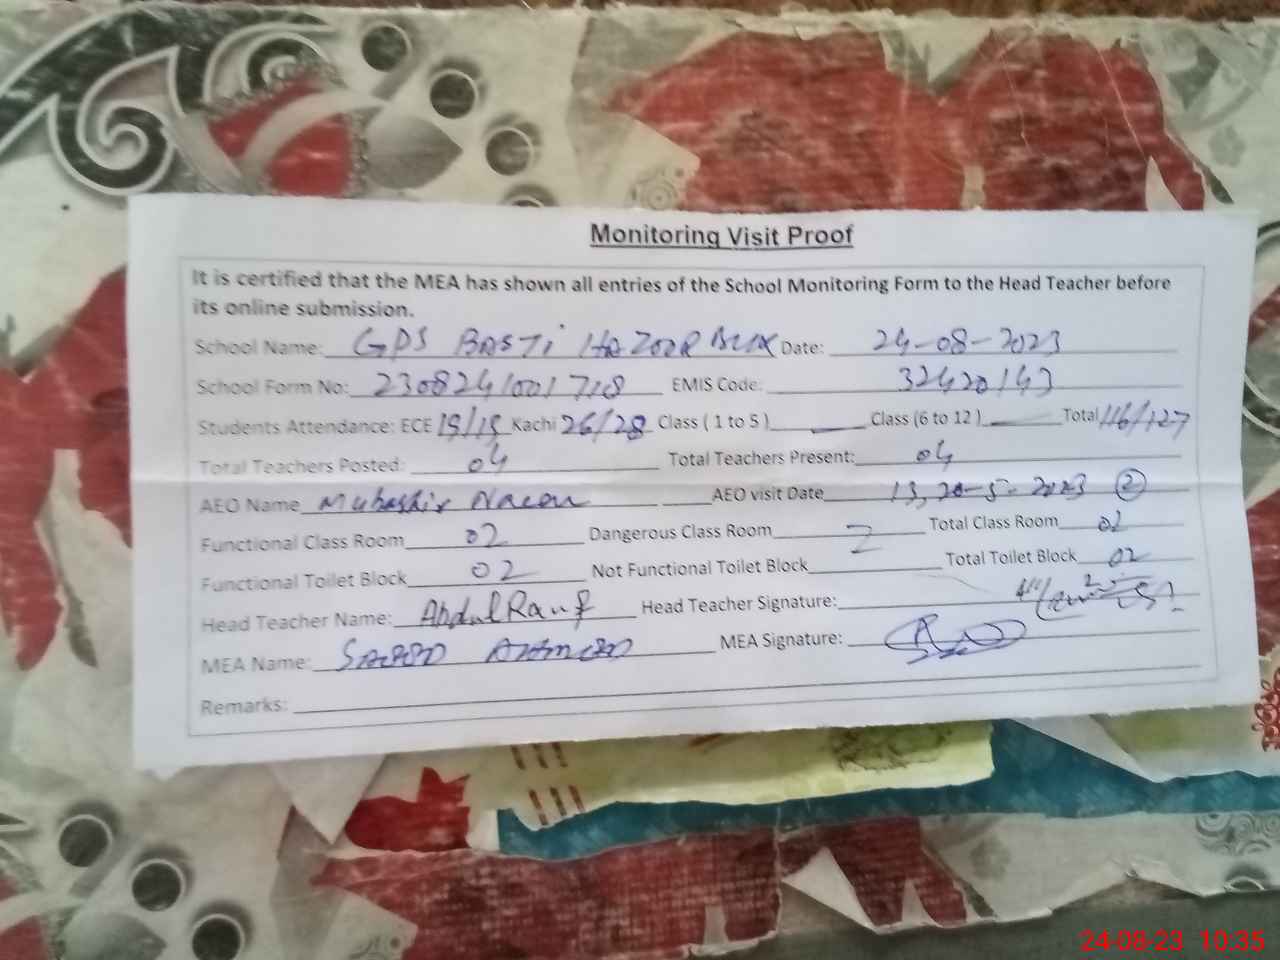 Monitoring Visit Proof
It is certified that the MEA has shown all entries of the School Monitoring Form to the Head Teacher before
its online submission.
School Name: GPS BASTI HAZOOR BUX Date: 24-08-2023
School Form No: 2308241001718 EMIS Code: 32420143
Students Attendance: ECE 19/19 Kachi 26/28 Class ( 1 to 5 ) — Class (6 to 12 ) — Total 116/127
Total Teachers Posted: 04 Total Teachers Present: 04
AEO Name Mubashir AEO visit Date 13, 20-5-2023 2
Functional Class Room 02 Dangerous Class Room Total Class Room 02
Functional Toilet Block 02 Not Functional Toilet Block Total Toilet Block 02
Head Teacher Name: Abdul Rauf Head Teacher Signature:
MEA Name: SAEED AHMED MEA Signature:
Remarks:
24-08-23 10:35